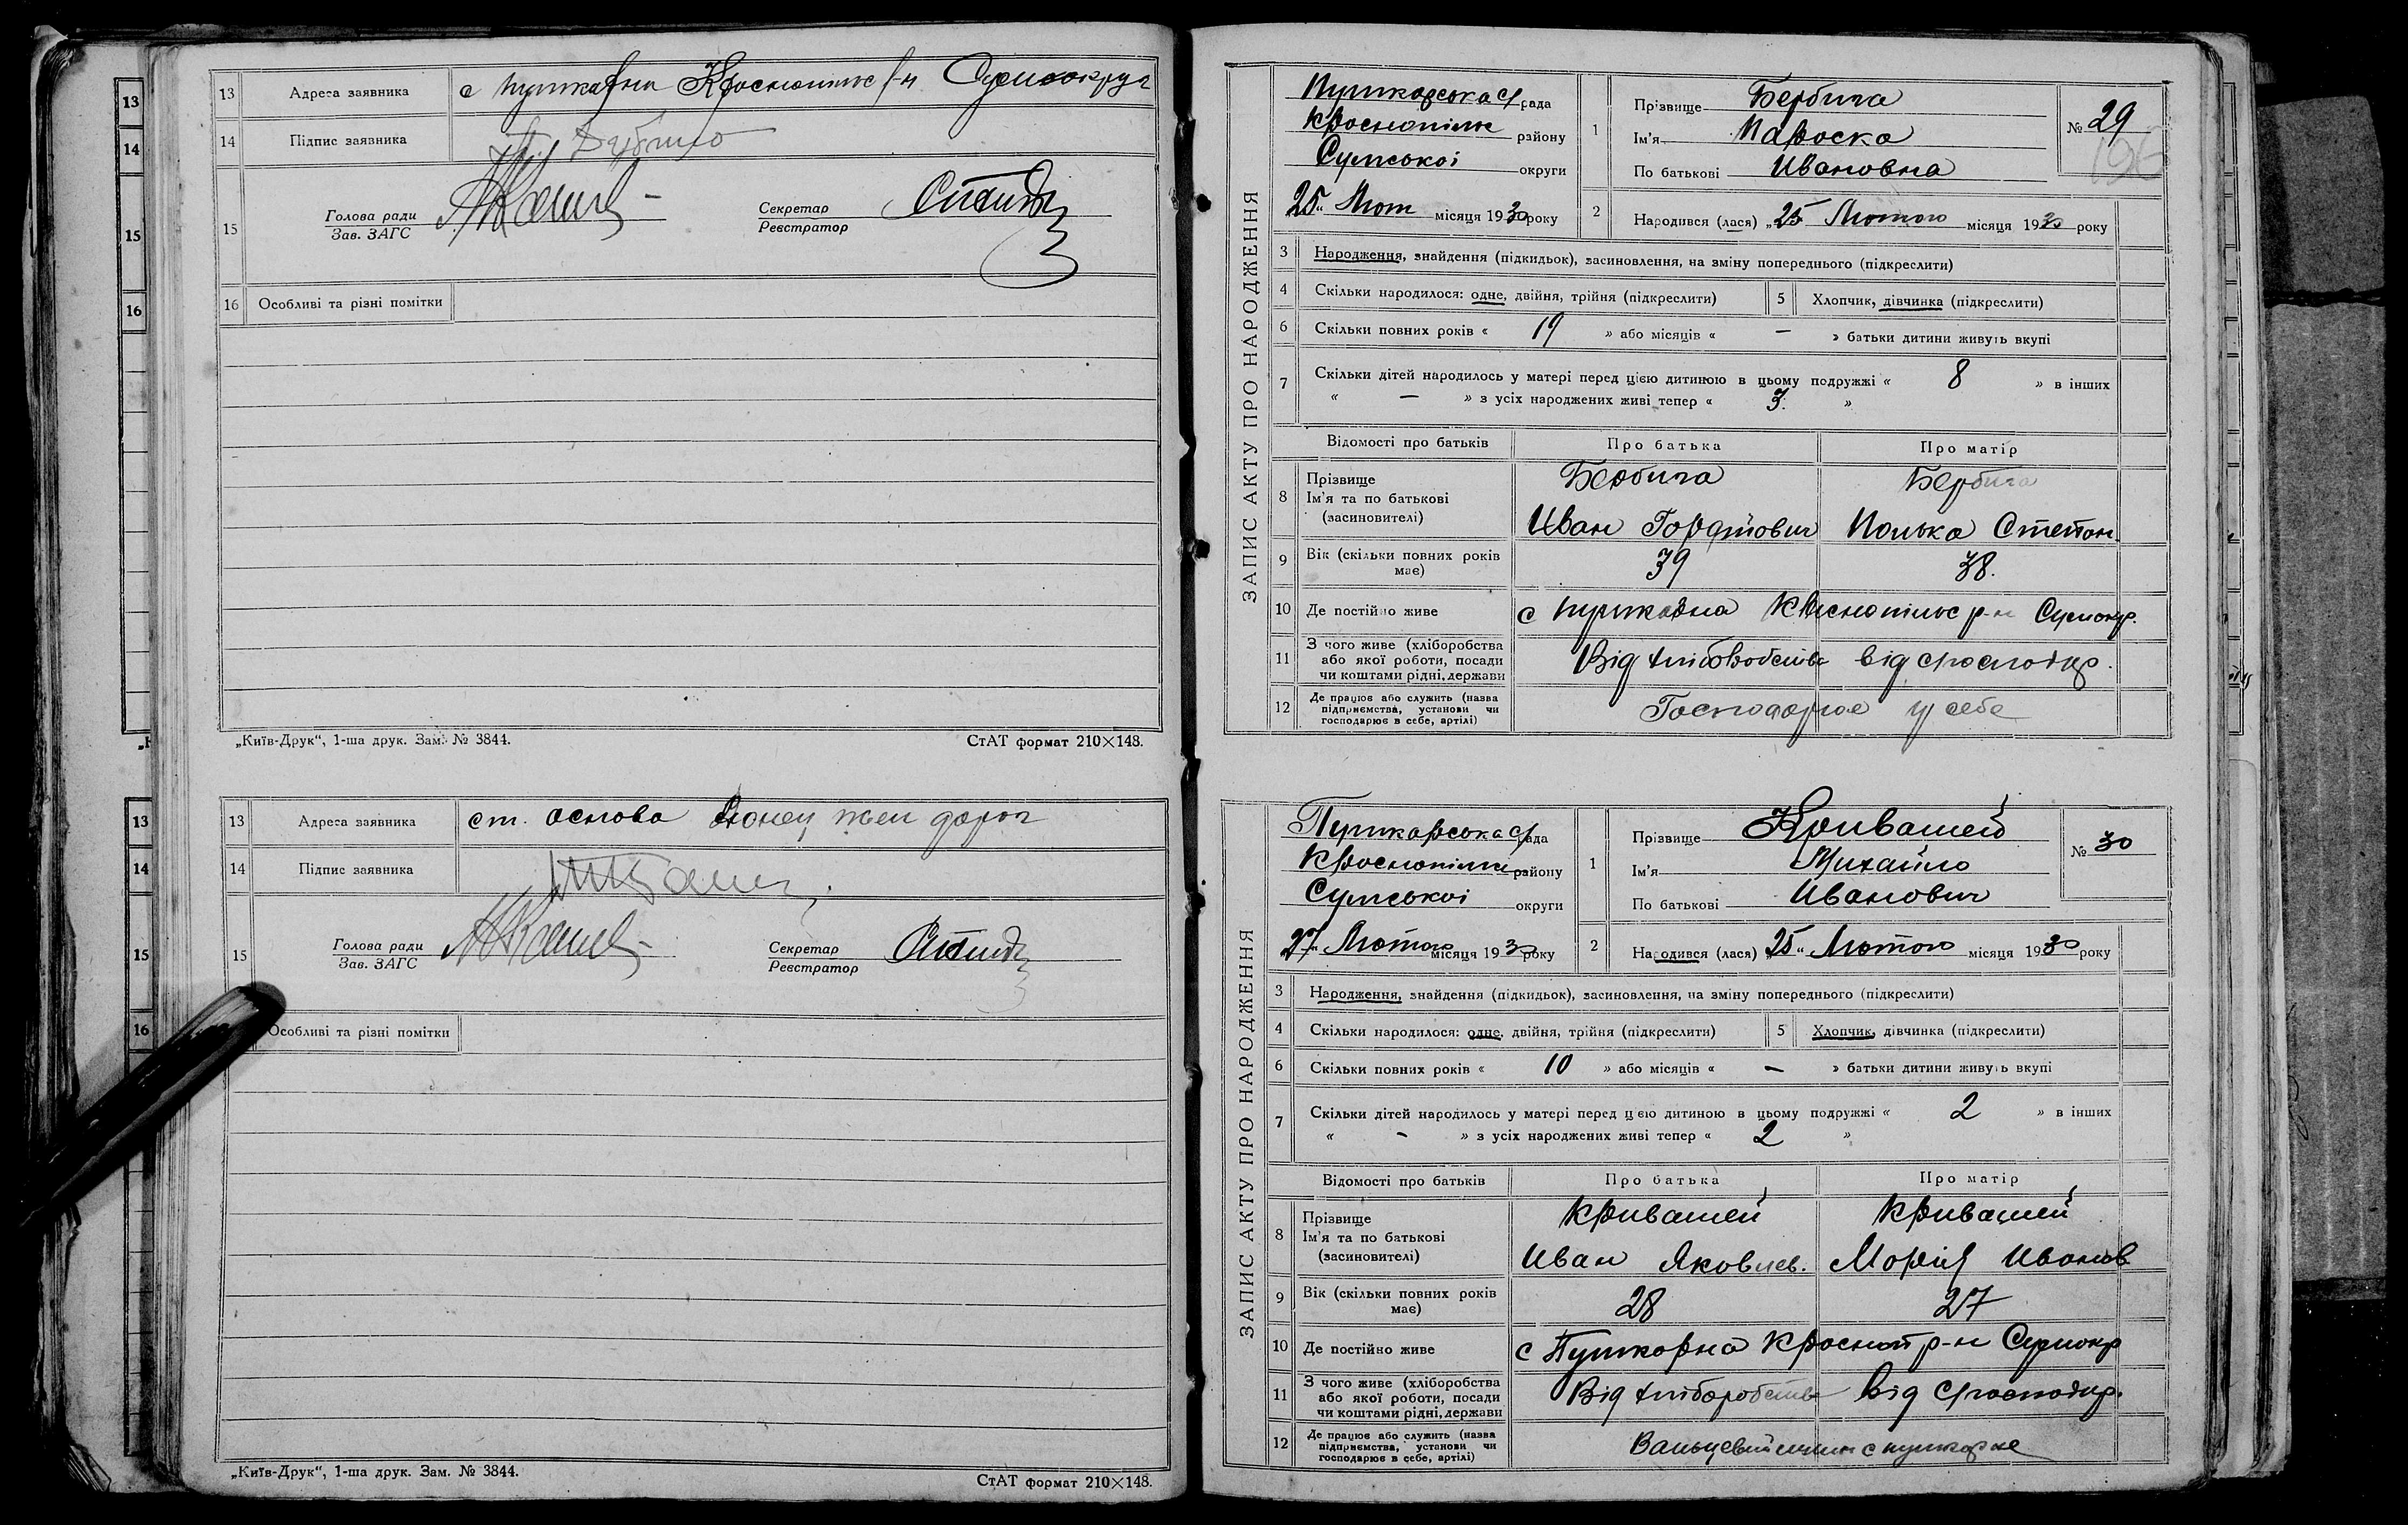 13 Адреса заявника с Пушкарна Краснопільс р-н Сумокруг
14 Підпис заявника
15 Голова ради
Зав. ЗАГС
Секретар
Реєстратор
16 Особливі та різні помітки
„Київ-Друк“, 1-ша друк. Зам. № 3844. СтАТ формат 210×148.
13 Адреса заявника ст. основа Донец жел дорог
14 Підпис заявника
15 Голова ради
Зав. ЗАГС
Секретар
Реєстратор
Особливі та різні помітки
„Київ-Друк“, 1-ша друк. Зам. № 3844. СтАТ формат 210×148.
ЗАПИС АКТУ ПРО НАРОДЖЕННЯ
Пушкарська с/рада
Краснопільс району
Сумськоі округи
25 „ Лют місяця 1930 року
1 Прізвище Бербига
Ім'я Параска
По батькові Ивановна
№ 29
2 Народився (лася) „25 Лютого місяця 1930 року
3 Народження, знайдення (підкидьок), засиновлення, на зміну попереднього (підкреслити)
4 Скільки народилося: одне, двійня, трійня (підкреслити) 5 Хлопчик, дівчинка (підкреслити)
6 Скільки повних років « 19 » або місяців « — » батьки дитини живуть вкупі
7 Скільки дітей народилось у матері перед цією дитиною в цьому подружжі « 8 » в інших
« — » з усіх народжених живі тепер « 3. »
Відомості про батьків Про батька Про матір
8 Прізвище Бербига Бербига
Ім'я та по батькові
(засновителі) Иван Степан
9 Вік (скільки повних років має) 39 38.
10 Де постійно живе с Пушкарна Краснопільс р-н Сумокр.
11 З чого живе (хліборобства
або якої роботи, посади
чи коштами рідні, держави Від хліборобства від с/господар.
12 Де працює або служить (назва
підприємства, установи чи
господарює в себе, артілі) Господарює у себе
ЗАПИС АКТУ ПРО НАРОДЖЕННЯ
Пушкарська с/рада
Краснопільс району
Сумськоі округи
27 „ Лютого місяця 1930 року
1 Прізвище Кривашей
Ім'я Михайло
По батькові Иванович
№ 30
2 Народився (лася) „25“ Лютого місяця 1930 року
3 Народження, знайдення (підкидьок), засиновлення, на зміну попереднього (підкреслити)
4 Скільки народилося: одне, двійня, трійня (підкреслити) 5 Хлопчик, дівчинка (підкреслити)
6 Скільки повних років « 10 » або місяців « — » батьки дитини живуть вкупі
7 Скільки дітей народилось у матері перед цією дитиною в цьому подружжі « 2 » в інших
« - » з усіх народжених живі тепер « 2 »
Відомості про батьків Про батька Про матір
8 Прізвище Кривашей Кривашей
Ім'я та по батькові
(засиновителі) Иван Яковлев. Марія Иванов
9 Вік (скільки повних років має) 28 27
10 Де постійно живе с Пушкарна Краснопр-н Сумокр
11 З чого живе (хліборобства
або якої роботи, посади
чи коштами рідні, держави Від хліборобства від с/господар.
12 Де працює або служить (назва
підприємства, установи чи
господарює в себе, артілі) с Пушкарне